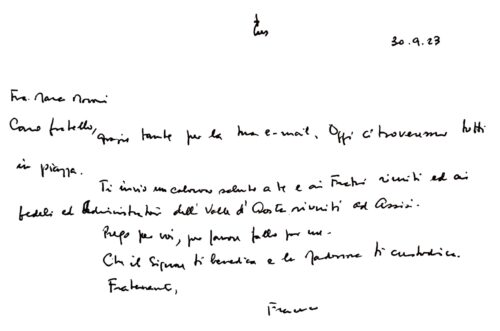 30.9.23
Fra. Marco Moroni
Caro fratello, grazie tante per la tua e-mail. Oggi ci troveremo tutti
in piazza.
Ti invio un caloroso saluto a te e ai Fratri riuniti ed ai
fedeli ed Administratori dell' Valle d' Aosta riuniti ad Assisi.
Prego per voi, per favore fallo per me.
Che il Signore ti benedica e la Madonna ti custodisca.
Fraternamente,
Francesco